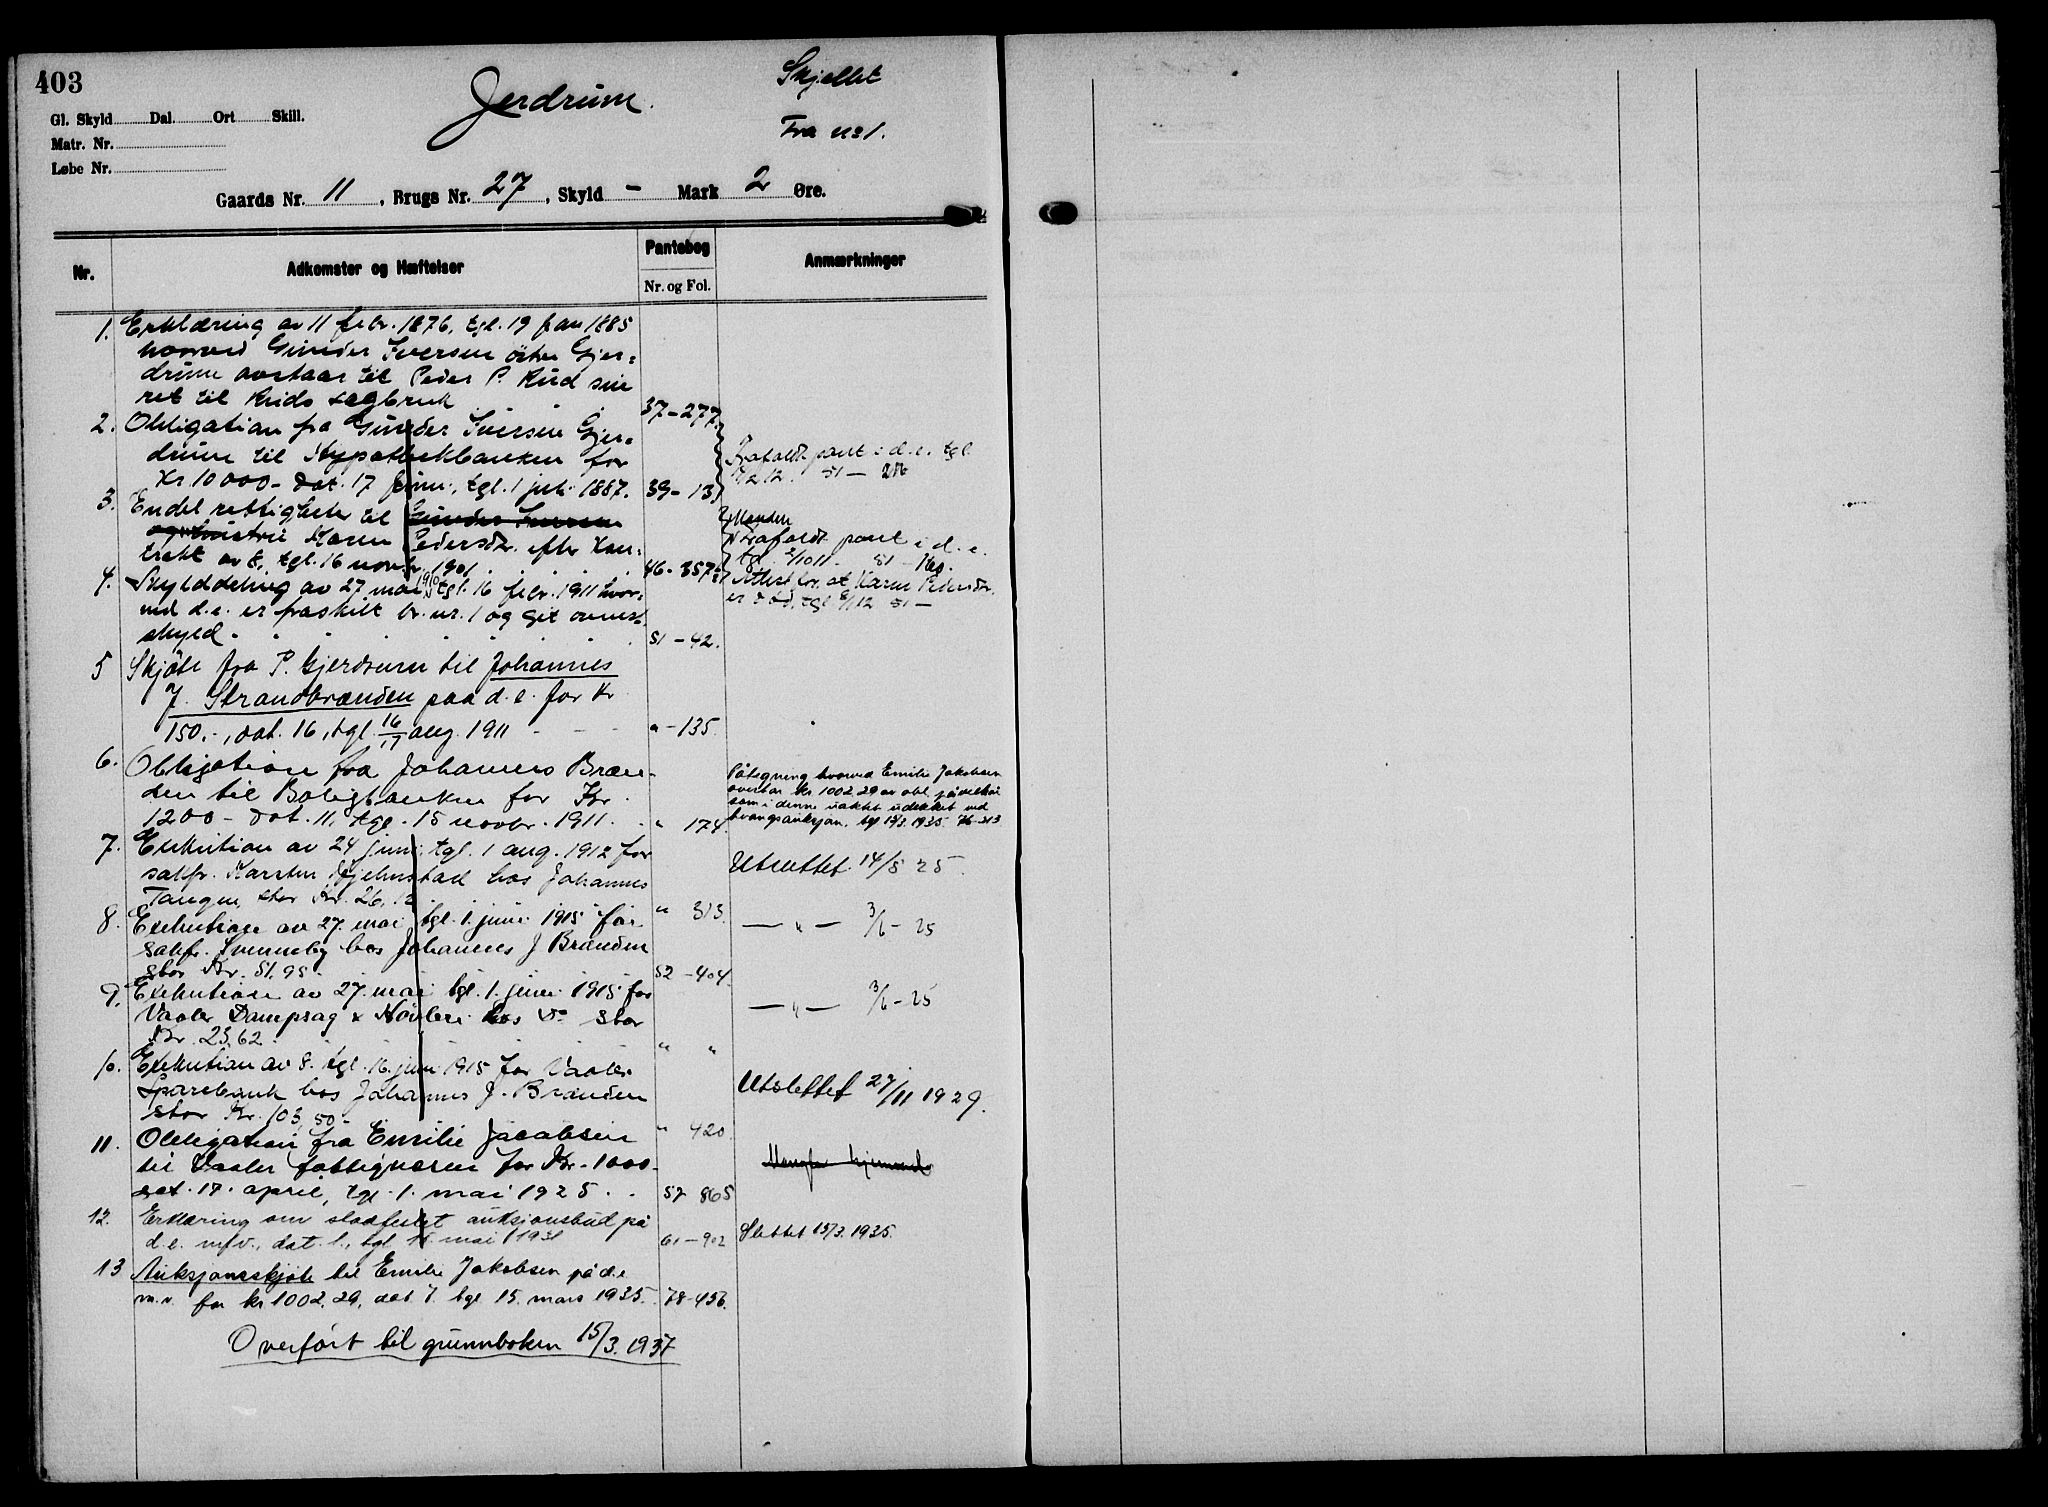 403
Jerdrum.
Skjellet
Fra nr 1.
Gl. Skyld Dal. Ort Skill.
Matr. Nr.
Løbe Nr.
Gaards Nr. 11, Brugs Nr. 27, Skyld - Mark 2 Øre.
Nr. Adkomster og Hæftelser Pantebog Anmærkninger
Nr. og Fol.
1. Erklæring av 11 febr. 1876, tgl. 19 jan 1885
hvorved Gunder Iversen østre Gjer=
drum avstaar til Peder P. Rud sin
ret til Ruds sagbruk 37-277.
2. Obligation fra Gunder Iversen Gjer=
drum til Hypothekbanken for
Kr 10000- dat. 17 juni, tgl. 1 juli 1887. 39-131
Frafaldt pant i d.e. tgl.
12 51-
3. Endel rettigheter til Gunder Iversen
og hustru Karen Pedersdr. efter kon=
trakt av 8, tgl. 16 novbr. 1901. 46-357
Manden
Frafaldt pant i d.e.
tgl. 2/10 11. 51-
Attest for at Karen Pedersdr.
er død, tgl 12 51-
4. Skylddeling av 27 mai 1910 tgl. 16 febr. 1911 hvor=
ved d.e. er fraskilt br. nr. 1 og git anmst.
skyld. 51-42.
5 Skjøte fra P. Gjerdrum til Johannes
J. Strandbrænden paa d.e. for Kr
150.-, dat. 16, tgl. 16/17 aug. 1911 - - - " -135.
6. Obligation fra Johannes Bræn-
den til Boligbanken for Kr.
1200- dat. 11, tgl. 15 novbr. 1911. " 174.
Påtegning hvorved Emilie Jakobsen
overtar kr 1002.29 av obl.
som i denne udekket ved
tvangsauksjon. tgl 15/3. 1935. 76-313
7. Exekution av 24 juni, tgl. 1 aug. 1912 for
sakfr. Karsten Hjelmstad hos Johannes
Tangen, stor Kr. 26,12 " 313.
Utslettet 14/5 25.
8. Exekution av 27. mai tgl. 1. juni 1915 for
sakfr. Svenneby hos Johannes J Brænden
stor Kr. 51.95. 52-404.
— " — 3/6-25
9. Exekution av 27. mai tgl. 1. juni 1915 for
Vaaler Dampsag & Høvleri hos do stor
Kr. 23,62. " "
— " — 3/6-25
10. Exekution av 8. tgl. 16. juni 1915 for Vaaler
Sparebank hos Johannes J. Brænden
stor Kr. 103,50- " 420.
Utslettet 27/11 1929.
11. Obligation fra Emilie Jacobsen
til Vaaler fattigvæsen for Kr. 1000-
dat. 17. april, tgl. 1. mai 1925. . 57 865
12. Erklæring om stadfestet auksjonsbud på
d.e. mfv., dat. 1., tgl. 11. mai 1931 61-902
Slettet 15/3. 1935.
13 Auksjonsskjøte til Emilie Jakobsen på d.e
m.v. for kr 1002,29, dat 7. tgl 15. mars 1935. 78-456.
Overført til grunnboken 15/3. 1937